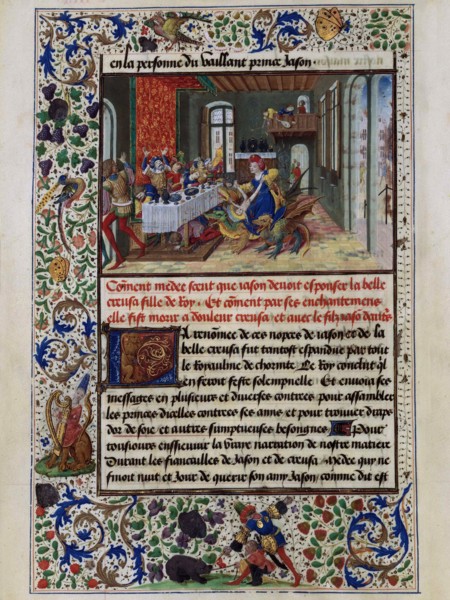 en la personne du vaillant prince Jason ·
Cōment medee sceut que iason devoit espouser la belle
creusa fille de Roy · Et cōment par ses enchantemens
elle fist morir a douleur creusa et avec le filz
La renōmee de ces nopces de iason et de la
belle creusa fut tantost espandue par tout
le Royaulme de chorinte Le Roy conclut ql
en feroit feste solempnelle Et envoia ses
messages en plusieurs et diverses contrees pour assambler
les princes dicelles contrees ses amis et pour trouver draps
dor de soie et autres sumptueuses besongnes Pour
tousiours ensievuir la vraye narration de nostre matiere
Durant les fiancailles de Jason et de creusa Medee quy ne
finoit nuit et Jour de querir son amy Jason comme dit est